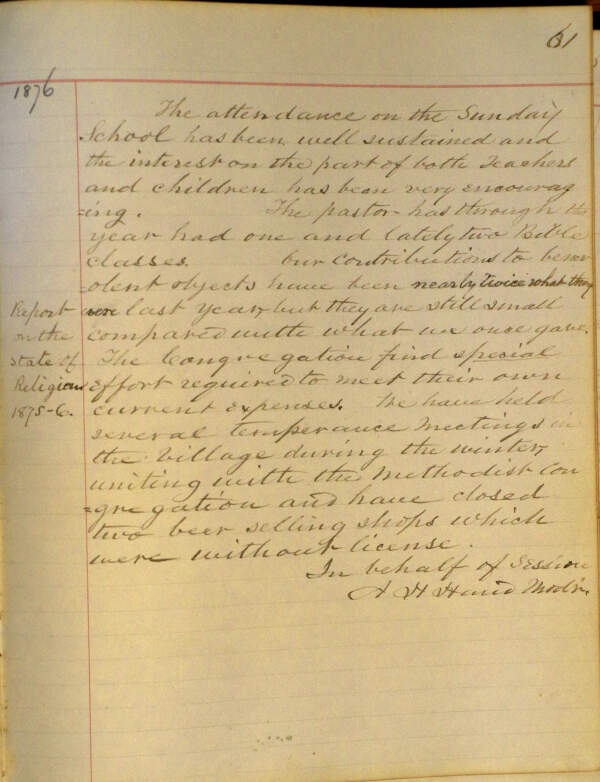 61
1876
The attendance on the Sunday
School has been well sustained and
the interest on the part of both Teachers
and children has been very encourag
=ing. The pastor has through the
year had one and lately two Bible
classes. Our contributions to benev
=olent objects have been nearly twice what they
were last year, but they are still small
compared with what we once gave.
The Congregation find special
effort required to meet their own
current expenses. We have held
several temperance meetings in
the village during the winter,
uniting with the Methodist Con
=gregation and have closed
two beer selling shops which
were without license.
In behalf of Session
A H Hand Modr.
Report
on the
State of
Religion
1875-6.